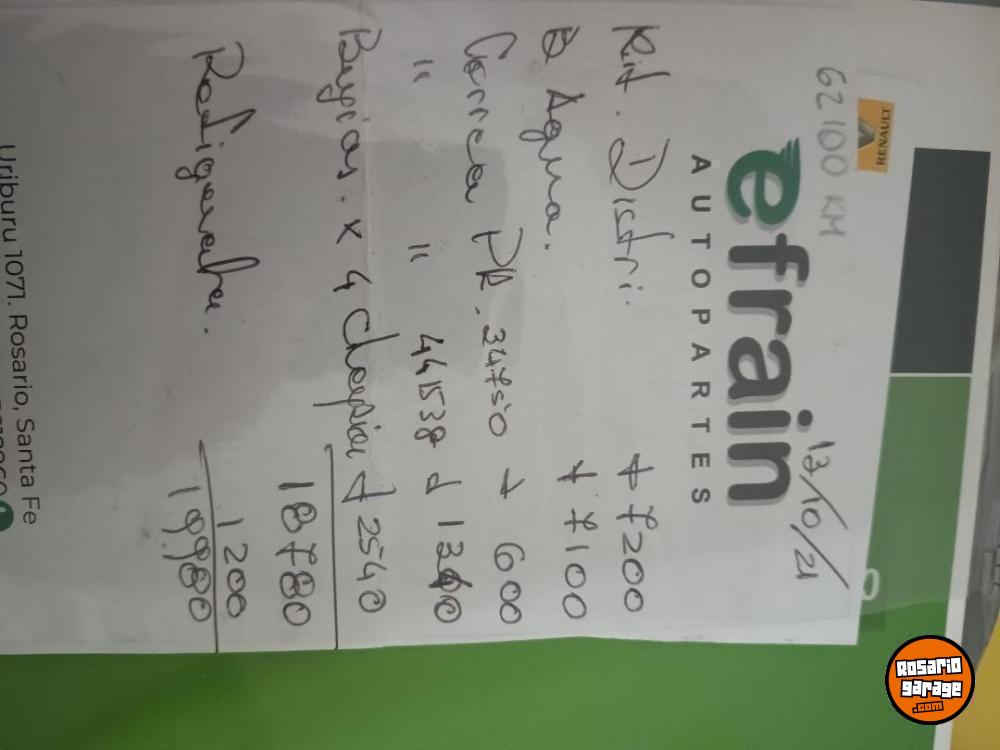 RENAULT
62100 KM
13/10/21
efrain
AUTOPARTES
Kit. Distri. 7200
B. Agua. 7100
Correa PK. 34750 600
" " 441538 1340
Bujias x 4 2540
18780
1200
19980
Uriburu 1071. Rosario, Santa Fe
Rosario
garage
.com